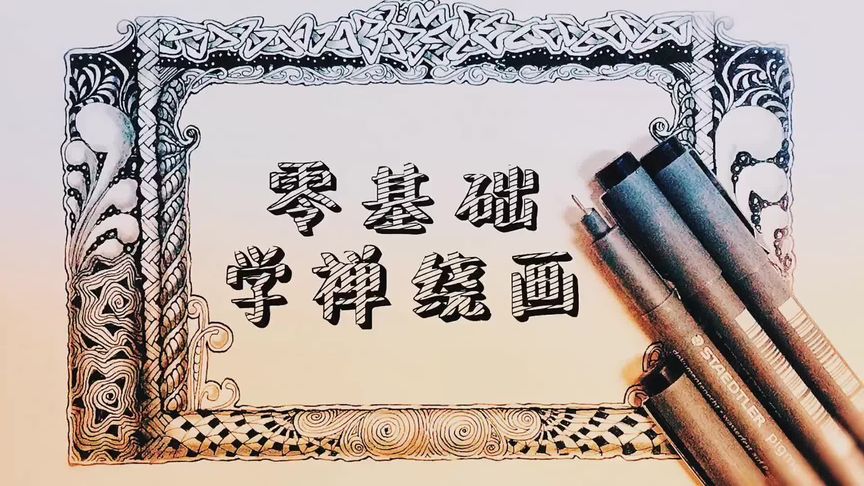 零基础
学禅绕画
STAEDTLER